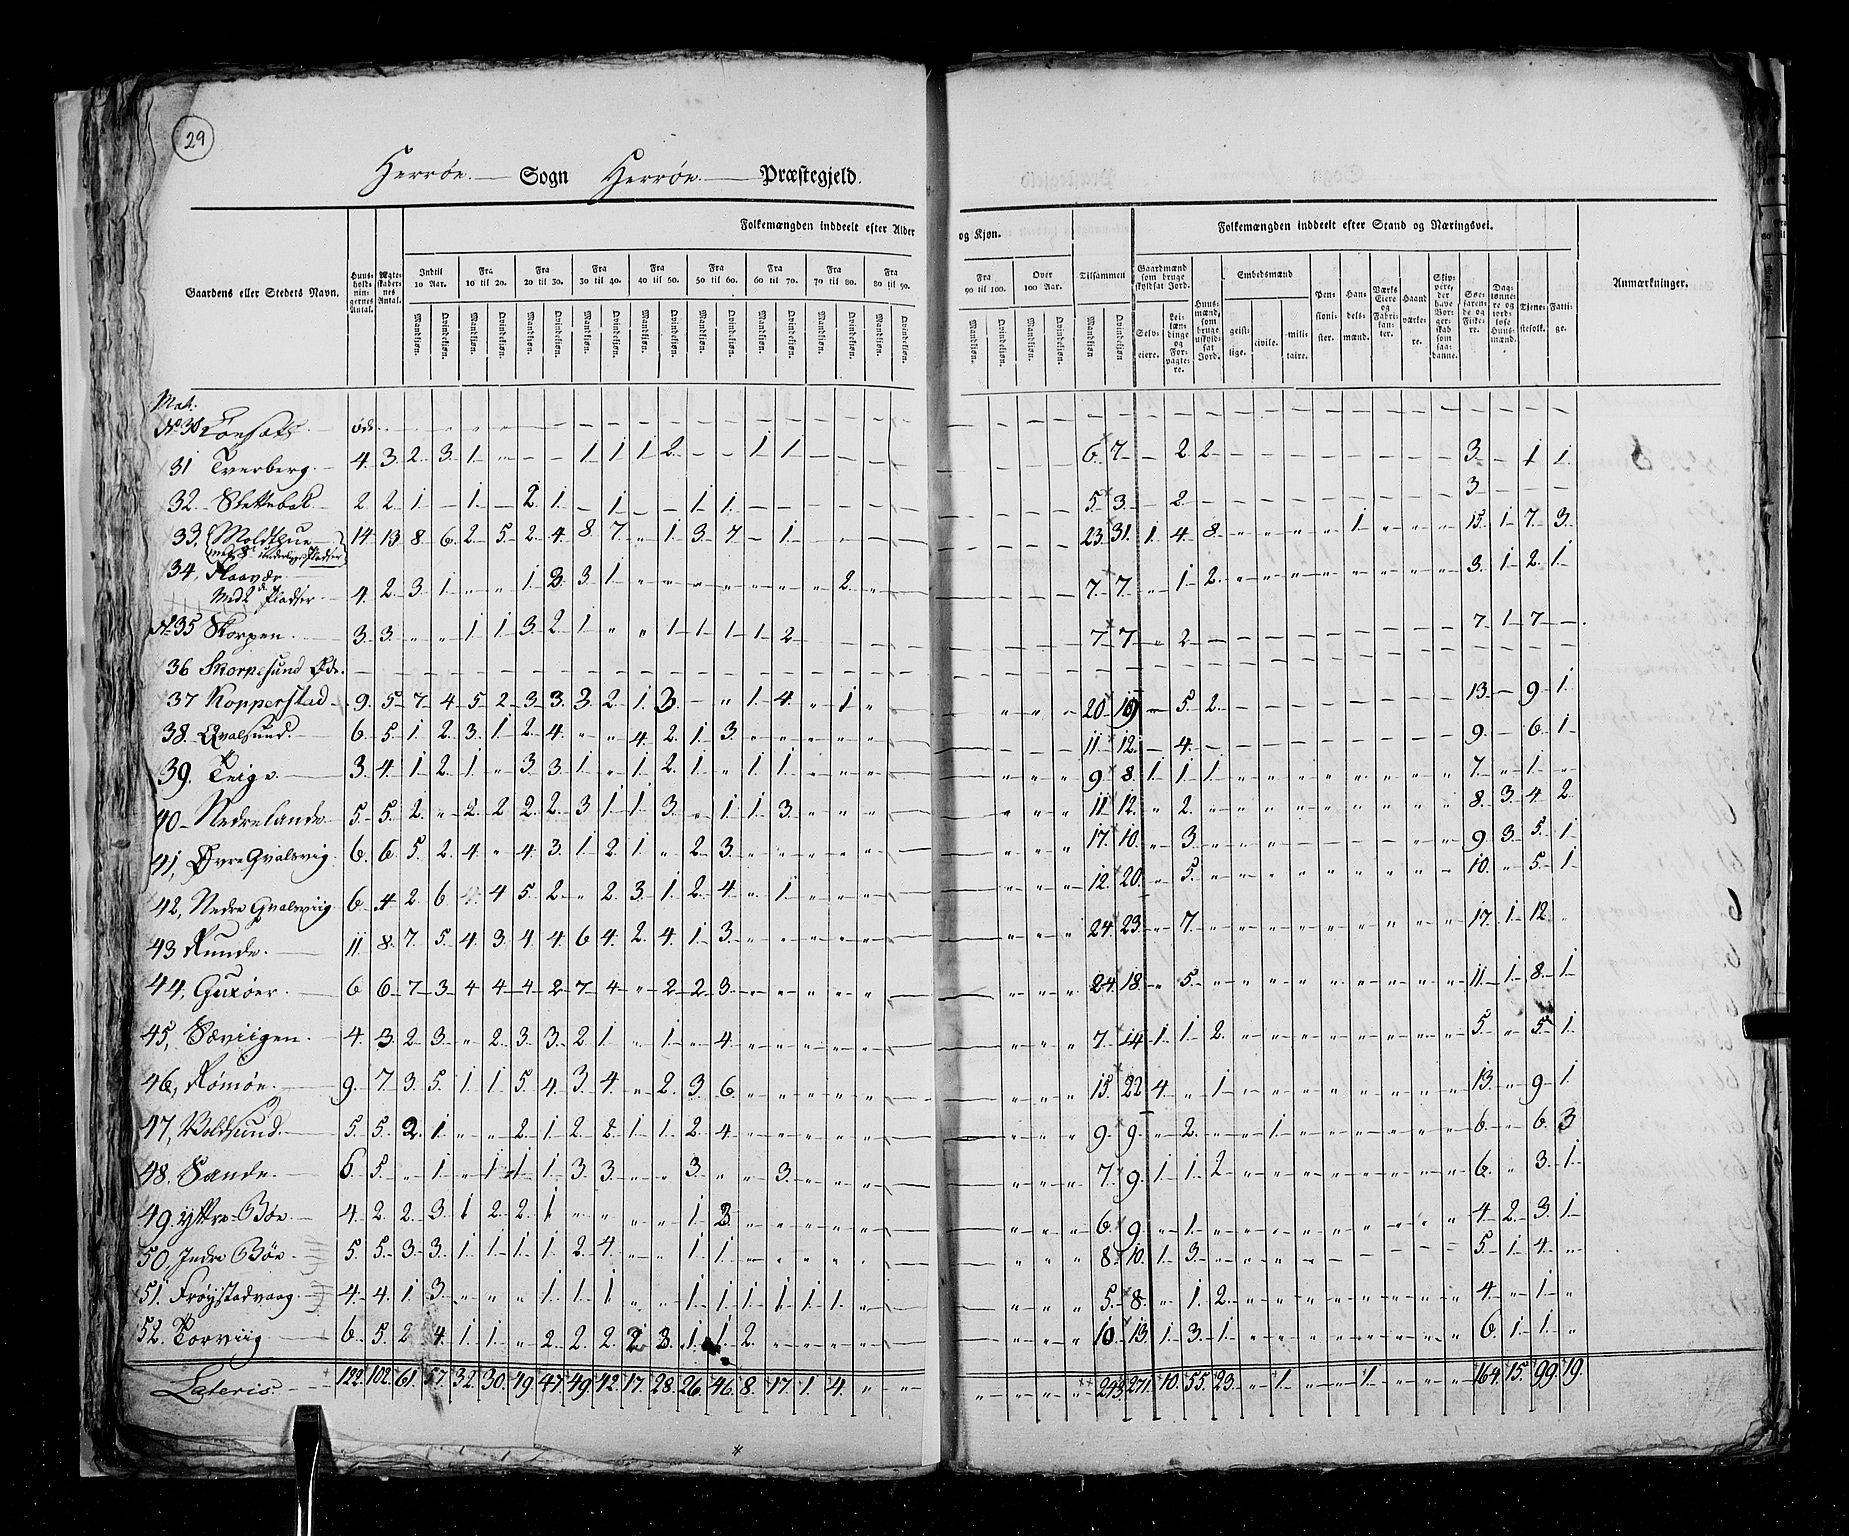 29
Herrøe Sogn Herrøe Præstegjeld.
Folkemængden inddeelt efter Alder og Kjøn. Folkemængden inddeelt efter Stand og Næringsvei.
Gaardens eller Stedets Navn. Huusholdningernes Antal. Ægteskabernes Antal. Indtil 10 Aar. Fra 10 til 20. Fra 20 til 30. Fra 30 til 40. Fra 40 til 50. Fra 50 til 60. Fra 60 til 70. Fra 70 til 80. Fra 80 til 90. Fra 90 til 100. Over 100 Aar. Tilsammen Gaardmænd som bruge skyldsat Jord. Huusmænd, som bruge uskyldsat Jord. Embedsmænd Pensionister. Handelsmænd. Værks Eiere og Fabrikanter. Haandværkere. Skippere, der have Borgerskab som saadanne. Søefarende og Fiskere. Daglønnere og jordløse Huusmænd. Tjenestefolk. Fattige. Anmærkninger.
Mandkiøn. Qvindekiøn. Selveiere. Leilændinge og Forpagtere. geistlige. civile. militaire.
Mat.
No 30
31 Tverberg 4. 3. 2. 3. 1. 1 1 1 2. 1 1. 6. 7. 2 2 3. 1 1.
32 2 2 1 1 2. 1. 1 1 1. 5. 3. 2 3
33. 14 13 8 6. 2 5. 2. 4 8. 7. 1. 3. 7. 1. 23. 31. 1. 4 8. 1. 15. 1. 7. 3.
med 8 underlig. Pladser
34, Flaavær
Med 2de Pladser 4. 2. 3. 1. 1. 3. 3. 1. 2. 7. 7. 1. 2. 3. 1. 2. 1.
No 35 Skorpen 3. 3. 1 1 3. 2. 1. 1. 1. 1. 1. 2. 7. 7. 2. 7. 1. 7.
36 Skorpesund Øde.
37 Kopperstad 9. 5. 7. 4. 5. 2. 3. 3. 3. 2. 1. 3. 1. 4. 1. 20. 19 5. 2. 13. 9. 1.
38. Qvalsund. 6. 5 1. 2. 3. 1. 2. 4. 4. 2. 1. 3. 11. 12. 4. 9. 6. 1
39. Teige 3. 4. 1. 2. 1. 3. 3. 1. 1. 2. 1. 1. 1. 9. 8. 1. 1. 1. 7. 1.
40 Nedrelande 5. 5. 2. 2. 2. 2. 2. 3. 1. 1. 3. 1. 1. 3. 11. 12. 2. 8. 3. 4. 2.
41, Øvre Qvalsvig. 6. 6. 5. 2. 4. 4. 3. 1. 2. 1. 2. 3. 17. 10. 3. 9. 3. 5. 1.
42, Nedre Qvalsviig 6. 4. 2. 6. 4. 5. 2. 2. 3. 1. 2. 4. 1. 12. 20. 5. 10. 5. 1
43 Runde. 11 8. 7. 5. 4. 3. 4. 4. 6. 4. 2. 4. 1. 3. 24. 23. 7. 17. 1. 12.
44, Gurøer. 6 6. 7. 3. 4. 4. 4. 2. 7. 4. 2. 2. 3. 24. 18. 5. 11. 1. 8. 1.
45, Sæviigen. 4. 3. 2. 3. 2. 3. 3. 2. 1. 1. 4. 7. 14 1. 1. 2. 5. 5. 1.
46, Rømøe. 9. 7. 3. 5. 1 1. 5. 4. 3. 4. 2. 3. 6. 15. 22 4. 1. 13. 9. 1.
47, Voldsund. 5. 5. 2. 1. 2. 1. 2. 2. 1. 1. 2. 4. 9. 9. 2. 1. 6. 6. 3
48. Sande. 6 5. 1. 1 1. 1. 3. 3. 3. 3. 7. 9. 1. 1. 2. 6. 3. 1.
49. Yttre-Bøe. 4. 2. 2. 3. 1 2. 2. 1. 1. 3. 6. 9. 1. 4 2. 3. 1.
50, Indre Bøe. 5. 5. 3. 3. 1. 1. 1. 1. 2. 4. 1. 1. 8. 10. 1. 3. 5. 1. 4.
51. Frøystadvaag. 4. 4. 1. 3. 1. 1. 1. 1. 1. 1. 1. 1. 1. 5. 8. 1. 2. 4. 1.
52. Torviig 6. 5. 2. 4. 1. 1. 2. 2. 2. 2. 3. 1. 1. 2. 10. 13. 1. 3. 1. 6. 1. 1.
Lateris. 122. 102. 61. 57. 32. 30. 49. 47. 49. 42. 17. 28. 26. 46. 8. 17. 1. 4. 243. 271. 10. 55. 23. 1. 1. 164. 15. 99. 19.